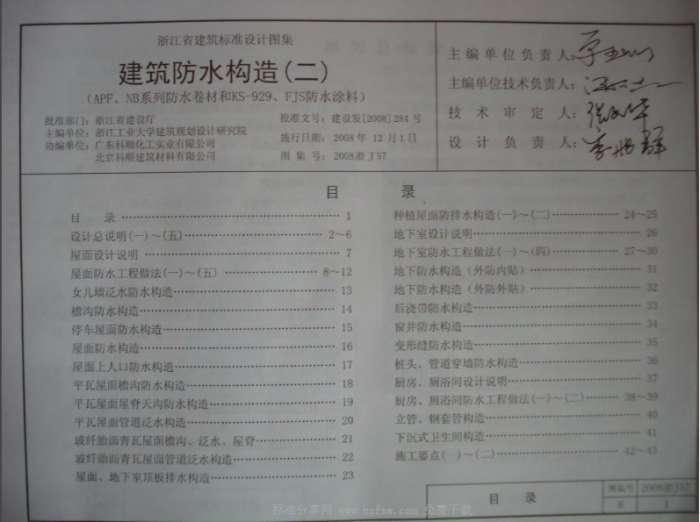 浙江省建筑标准设计图集
建筑防水构造(二)
(APF、NB系列防水卷材和KS-929、FJS防水涂料)
批准部门：浙江省建设厅
主编单位：浙江工业大学建筑规划设计研究院
协编单位：广东科顺化工实业有限公司
北京科顺建筑材料有限公司
批准文号：建设发[2008]284号
施行日期：2008年12月1日
图集号：2008浙J57
主编单位负责人:
主编单位技术负责人:
技术审定人:
设计负责人:
目 录
目 录 1
设计总说明(一)～(五) 2～6
屋面设计说明 7
屋面防水工程做法(一)～(五) 8～12
女儿墙泛水防水构造 13
檐沟防水构造 14
停车屋面防水构造 15
屋面防水构造 16
屋面上人口防水构造 17
平瓦屋面檐沟防水构造 18
平瓦屋面屋脊天沟防水构造 19
平瓦屋面管道泛水构造 20
玻纤胎沥青瓦屋面檐沟、泛水、屋脊 21
玻纤胎沥青瓦屋面管道泛水构造 22
屋面、地下室顶板排水构造 23
种植屋面防排水构造(一)～(二) 24～25
地下室设计说明 26
地下室防水工程做法(一)～(四) 27～30
地下防水构造(外防内贴) 31
地下防水构造(外防外贴) 32
后浇带防水构造 33
窗井防水构造 34
变形缝防水构造 35
桩头、管道穿墙防水构造 36
厨房、厕浴间设计说明 37
厨房、厕浴间防水工程做法(一)～(二) 38～39
立管、钢套管构造 40
下沉式卫生间构造 41
施工要点(一)～(二) 42～43
目 录
图集号 2008浙J57
页 1
标准分享网 www.bzfxw.com 免费下载